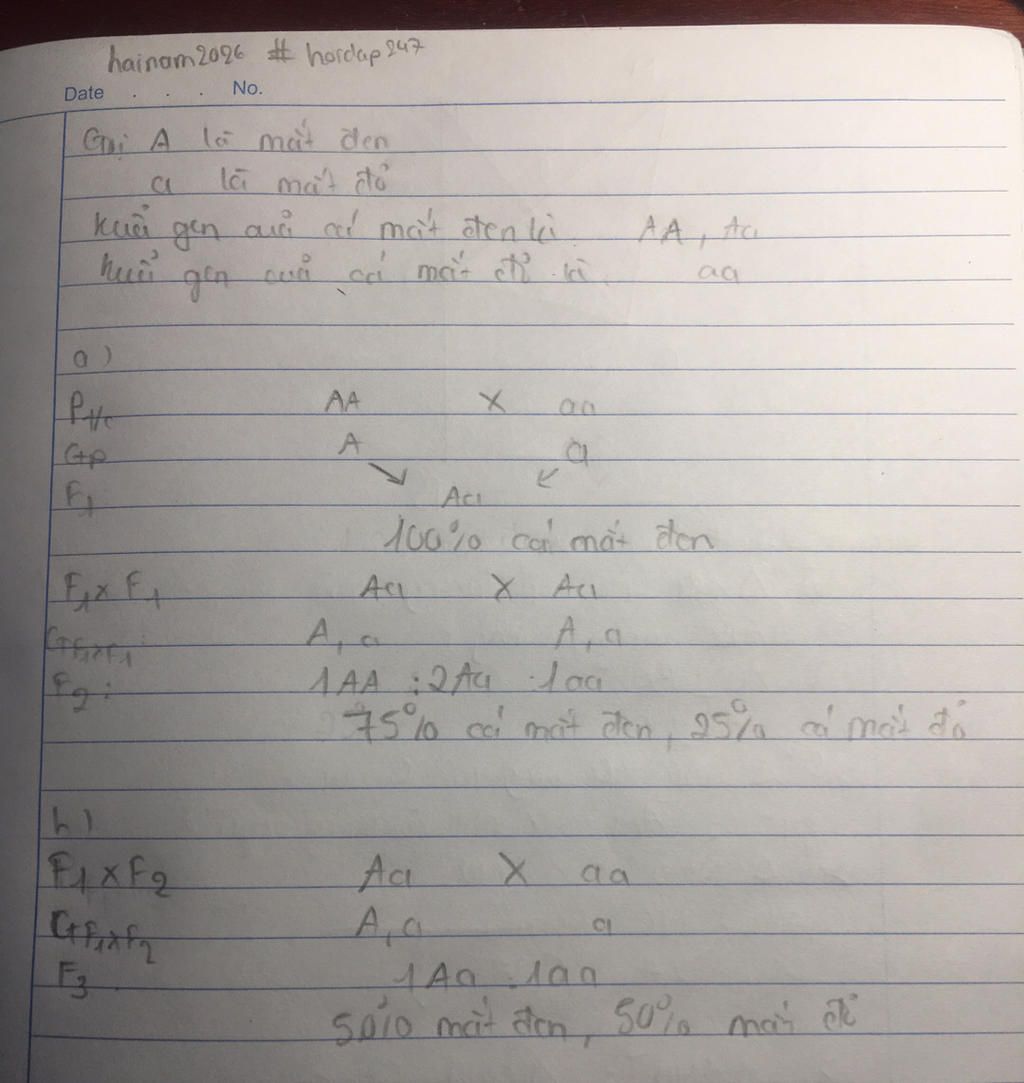 hainam2026 # hoidap247
Date . . . No.
Gọi A là mắt đen
a là mắt đỏ
kiểu gen của cá mắt đen là AA, Aa
kiểu gen của cá mắt đỏ là aa
a)
Pt/c AA X aa
Gp A a
F1 Aa
100% cá mắt đen
F1 x F1 Aa X Aa
GF1xF1: A, a A, a
F2: 1AA : 2Aa : 1aa
75% cá mắt đen, 25% cá mắt đỏ
b)
F1 x F2 Aa X aa
GF1xF2 A, a a
F3 1Aa : 1aa
50% mắt đen, 50% mắt đỏ